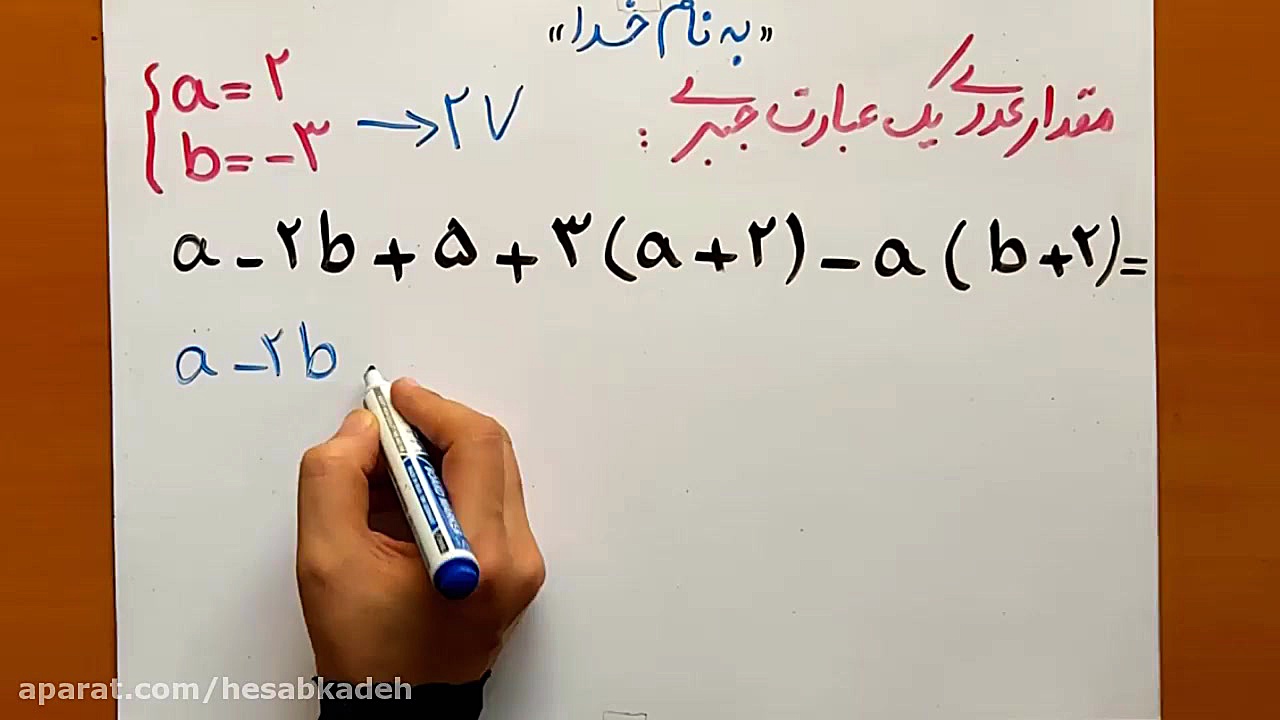 «به نام خدا»
مقدار عددی یک عبارت جبری :
a = ۲
b = -۳
→ ۲۷
a - ۲b + ۵ + ۳(a + ۲) - a(b + ۲) =
a - ۲b
aparat.com/hesabkadeh